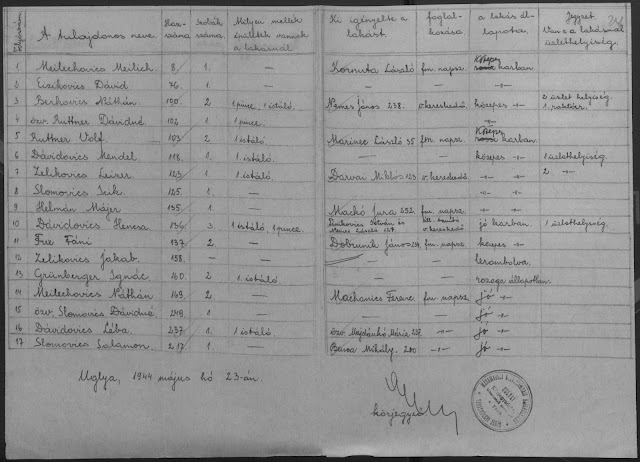 Folyószám | A tulajdonos neve | Házszáma | Szobák száma. | Melyen mellék épületek vannak a lakásnál | Ki igényelte a lakást | foglalkozása | a lakás állapota. | Jegyzet Van e a lakásnál üzlethelyiség.
1 | Meilechovics Meilich. | 8 | 1. | — | Kornuta László | fm. napsz. | közepes karban
2 | Eizikovics Dávid | 76 | 1. | — | — | — | —"—
3 | Berkovics Náthán | 100 | 2 | 1 pince, 1 istáló. | Nemes János 238. | v. kereskedő | közepes —"— | 2 üzlet helyiség 1. raktár.
4 | özv. Ruttner Dávidné | 102 | 1 | 1 pince | — | — | —"—
5 | Ruttner Volf. | 103 | 2 | 1 istáló. | Marinec László 35 | fm. napsz. | közepes karban.
6 | Dávidovics Mendel | 118. | 1. | 1 istáló. | — | — | közepes —"— | 1 üzlethelyiség.
7 | Zelikovics Leizer | 123 | 1. | 1 istáló. | Darvai Miklós 123 | v. kereskedő | —"— | 2 —"—
8 | Slomovics Izik | 125. | 1. | — | — | — | —"—
9 | Helmán Májer | 135. | 1. | — | Machó Jura 252. | fm. napsz. | —"—
10 | Dávidovics Hencsa | 136 | 3. | 1 istáló, 1 pince. | István és Nemes László 127. | v. kereskedő | jó karban. | 1 üzlethelyiség.
11 | Frie Fáni | 137. | 2 | — | Dobrunik János | fm. napsz. | közepes —"—
12 | Zelikovics Jakab. | 138. | — | — | — | — | lerombolva.
13 | Grünberger Ignác | 160 | 2 | 1 istáló. | — | — | rozoga állapotban.
14 | Meilechovics Náthán | 169. | 2. | — | Machanics Ferenc | fm. napsz. | Jó —"—
15 | özv. Slomovics Dávidné | 248. | 1. | — | — | — | Jó —"—
16 | Dávidovics Léba | 237. | 1. | 1 istáló | özv. Mária 237 | —"— | Jó —"—
17 | Slomovics Salamon. | 217 | 1. | — | Mihály 200 | —"— | Jó —"—
Uglya, 1944 május hó 23-án.
körjegyző